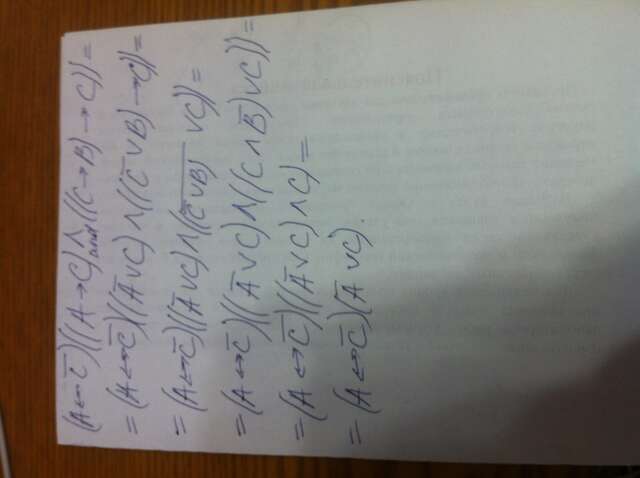 (A ↔ C̅)((A → C) ∧ and ((C → B) → C)) =
= (A ↔ C̅)((A̅ ∨ C) ∧ ((C̅ ∨ B) → C)) =
= (A ↔ C̅)((A̅ ∨ C) ∧ (\overline{C̅ ∨ B)} ∨ C)) =
= (A ↔ C̅)((A̅ ∨ C) ∧ ((C ∧ B̅) ∨ C)) =
= (A ↔ C̅)((A̅ ∨ C) ∧ C) =
= (A ↔ C̅)(A̅ ∨ C).